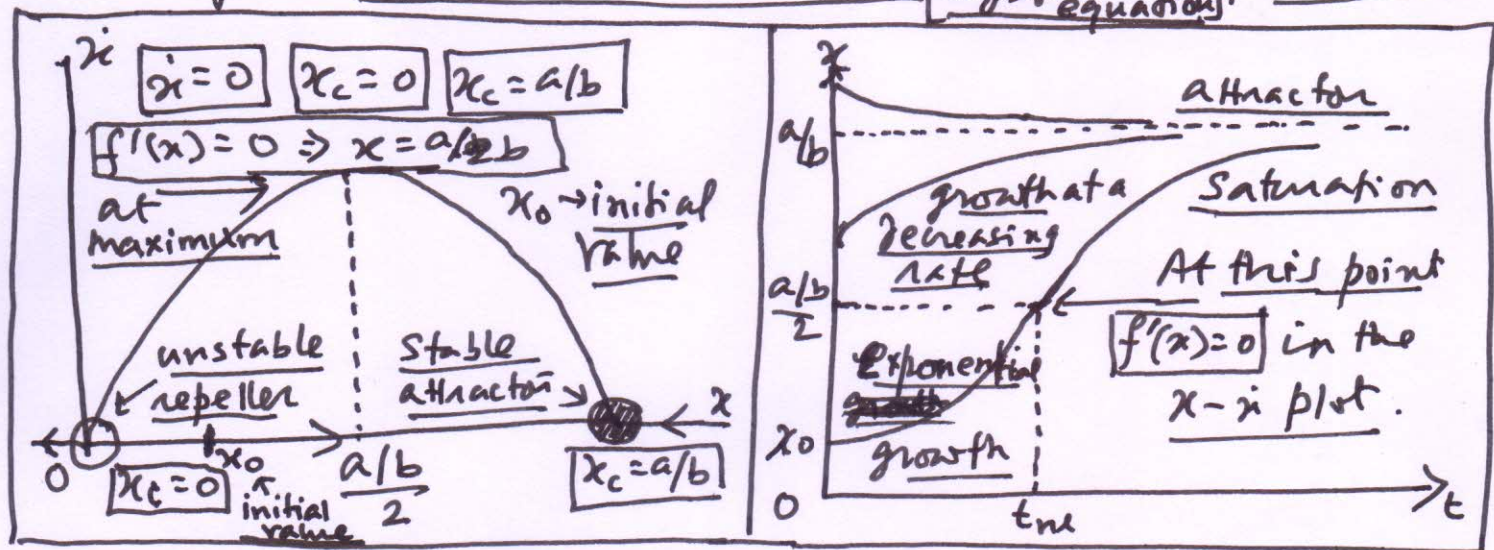 equations.
ẋ
ẋ = 0
x_c = 0
x_c = a/b
f'(x) = 0 ⇒ x = a/2b
at
maximum
x₀ → initial
value
unstable
repeller
stable
attractor
x
0
x_c = 0
x₀
initial
value
a/b
2
x_c = a/b
x
attractor
a/b
growth at a
decreasing
rate
saturation
a/b
2
At this point
f'(x) = 0 in the
x - ẋ plot.
Exponential
growth
x₀
0
t_nl
t